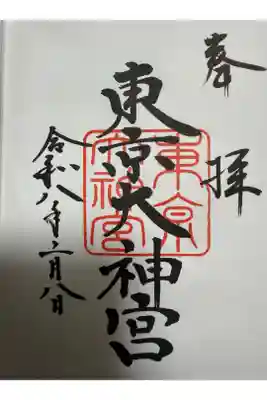 奉拝
東京大神宮
東京
大神宮
令和八年二月八日